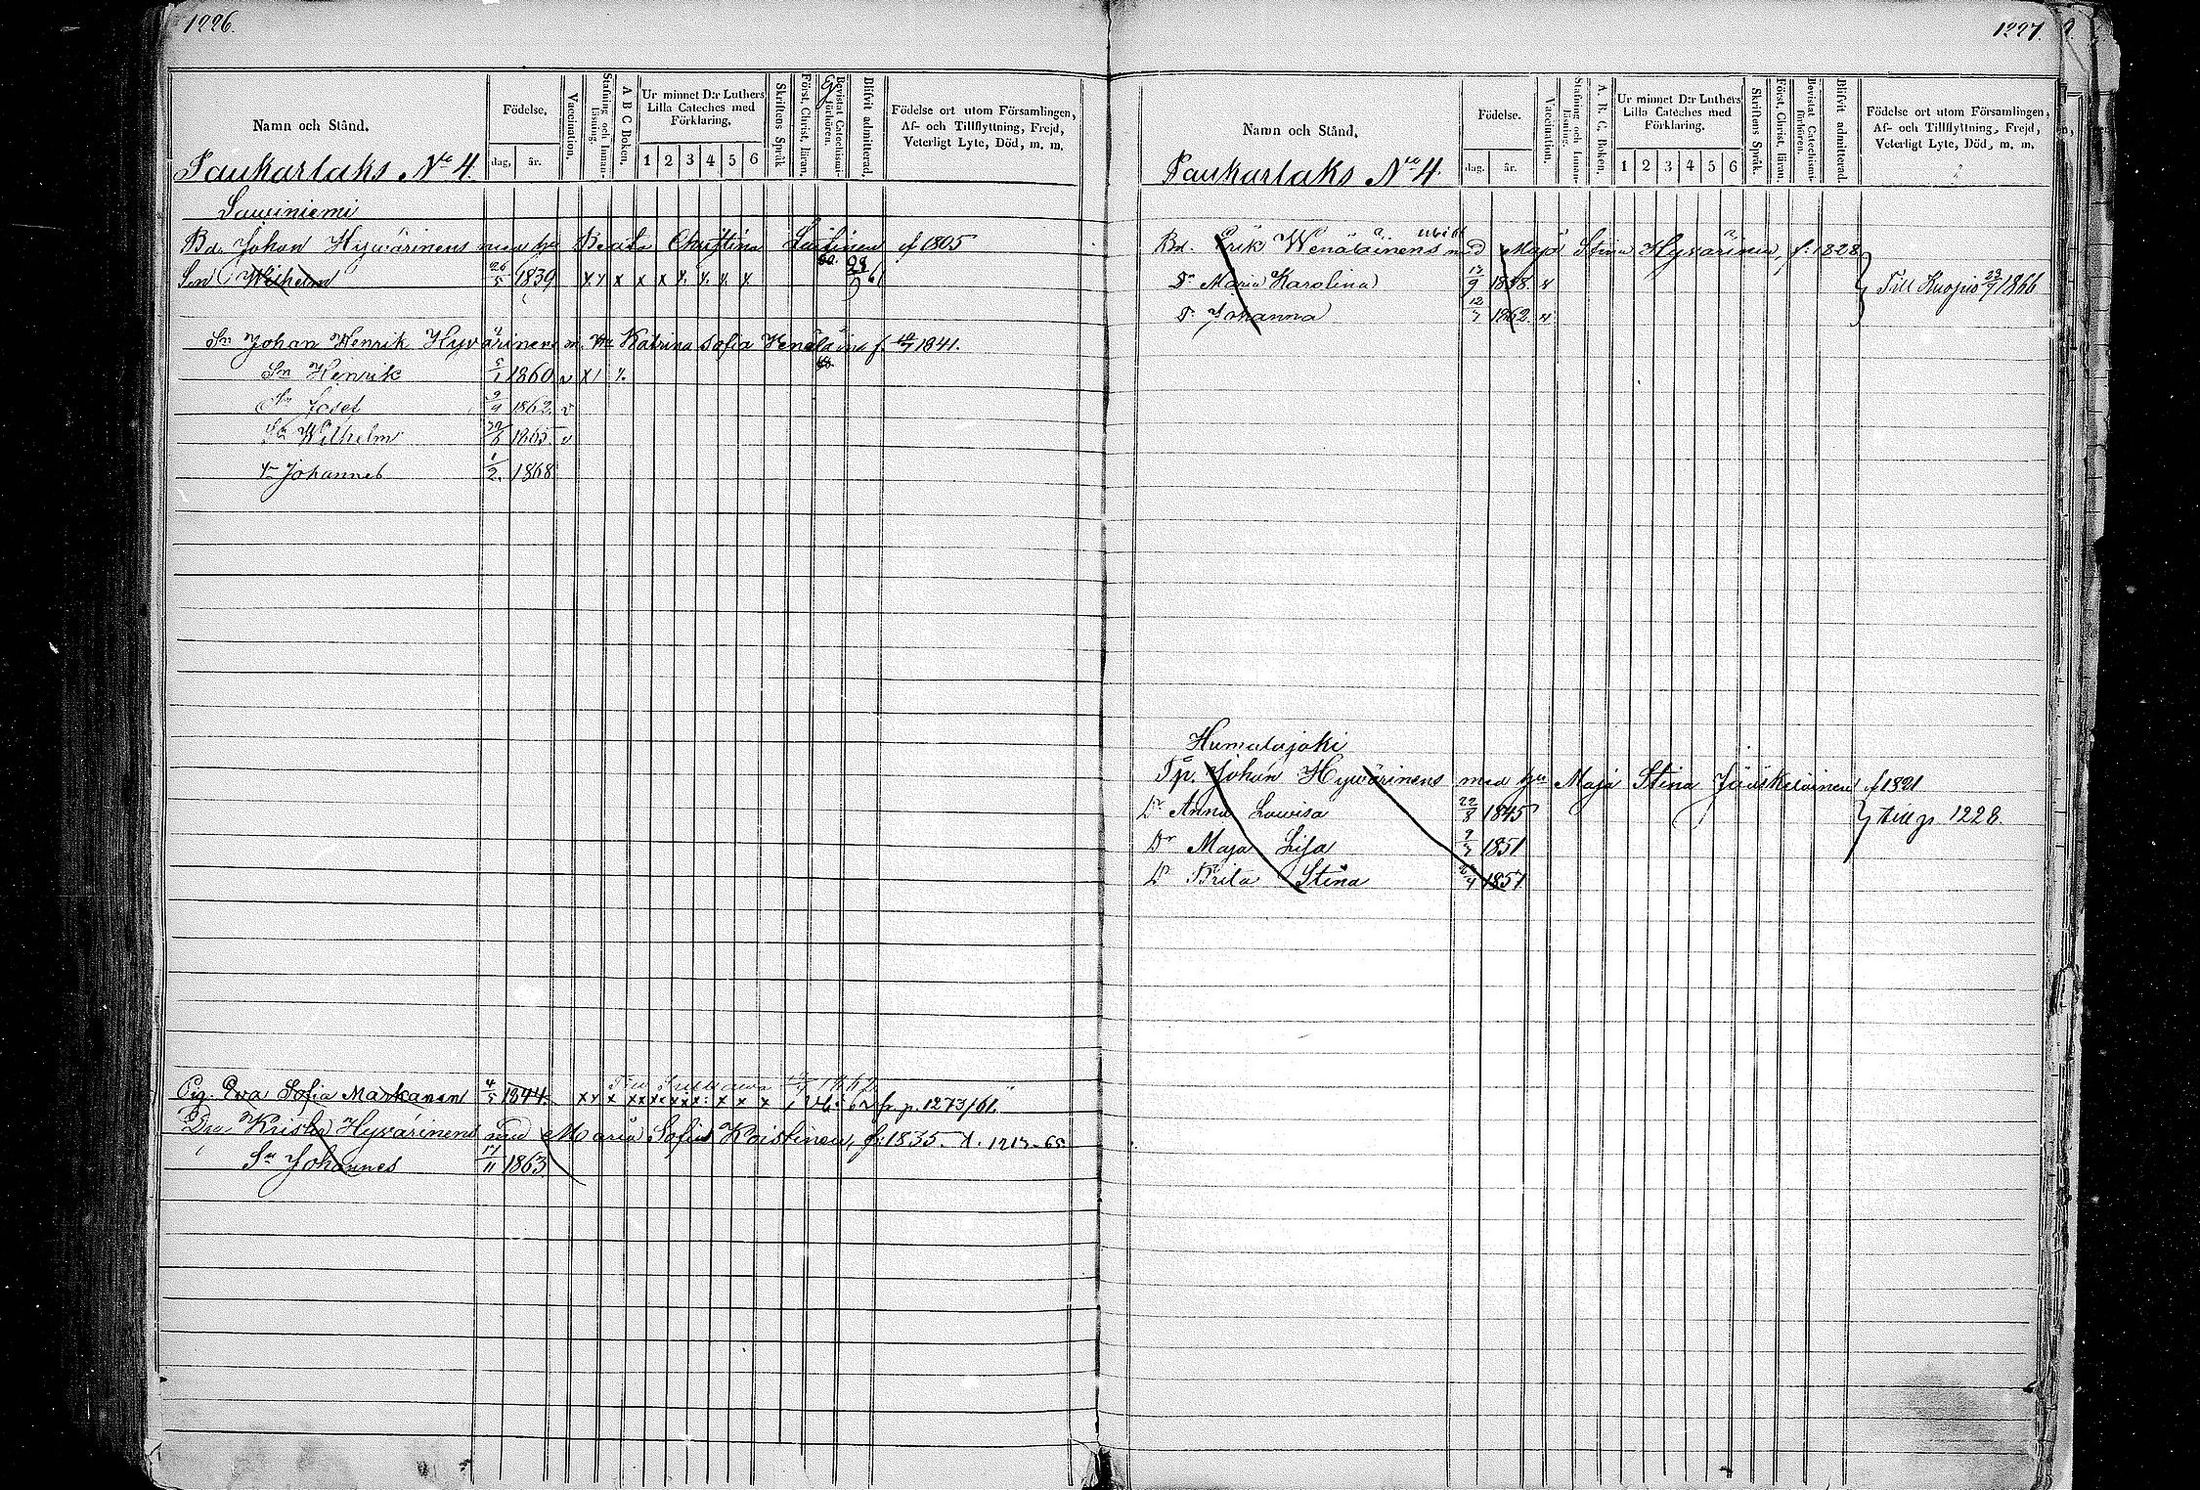 1226.
Namn och Stånd.
Födelse.
dag, år.
Vaccination,
Stafning och Innan-läsning.
A B C Boken,
Ur minnet D:r Luthers Lilla Cateches med Förklaring.
1 2 3 4 5 6
Skriftens Språk
Först. Christ. läran.
Bevistat Catechismi-förhören.
Blifvit admitterad.
Födelse ort utom Församlingen,
Af- och Tillflyttning, Frejd,
Veterligt Lyte, Död, m. m.
Paukarlaks No 4.
Sawiniemi
Bd. Johan Hyvärinens med hu Beata Christina f 1805
Sn Wilhelm 26/5 1839 x x x x x x x x x
Sn Johan Henrik Hyvärinens m. hu Katrina Sofia Venäläine f. 1841.
Sn Henrik 5/1 1860 v x 1 x
Sn Josef 2/9 1862. v
Sn Wilhelm 1865 v
Sn Johannes 1/2. 1868
Pig. Eva Sofia Markanen 4/5 1844. x x x x x x x fr p. 1273/61.
Krister Hyvärinens med Maria Sofia Koistinen, f. 1835. 1213-65
Sn Johannes 17/11 1863
1227.
Namn och Stånd.
Födelse.
dag. år.
Vaccination.
Stafning och Innan-läsning.
A. B. C. Boken,
Ur minnet D:r Luthers Lilla Cateches med Förklaring.
1 2 3 4 5 6
Skriftens Språk.
Först. Christ. läran,
Bevistat Catechismi-förhören.
Blifvit admitterad.
Födelse ort utom Församlingen,
Af- och Tillflyttning, Frejd,
Veterligt Lyte, Död, m. m.
Paukarlaks No 4.
Bd. Erik Wenäläinens med Maja Stina Hyvärinen, f. 1828
Dr Maria Karolina 13/9 1858. v
Dr Johanna 12/7 1862. v
Till Kuopio 23/7 1866
Humalajoki
Tp. Johan Hyvärinens med hu Maja Stina Jääskeläinen f 1821
Dr Anna Lowisa 22/8 1845
Dr Maja Lisa 2/7 1851
Dr Brita Stina 1857
till p. 1228.